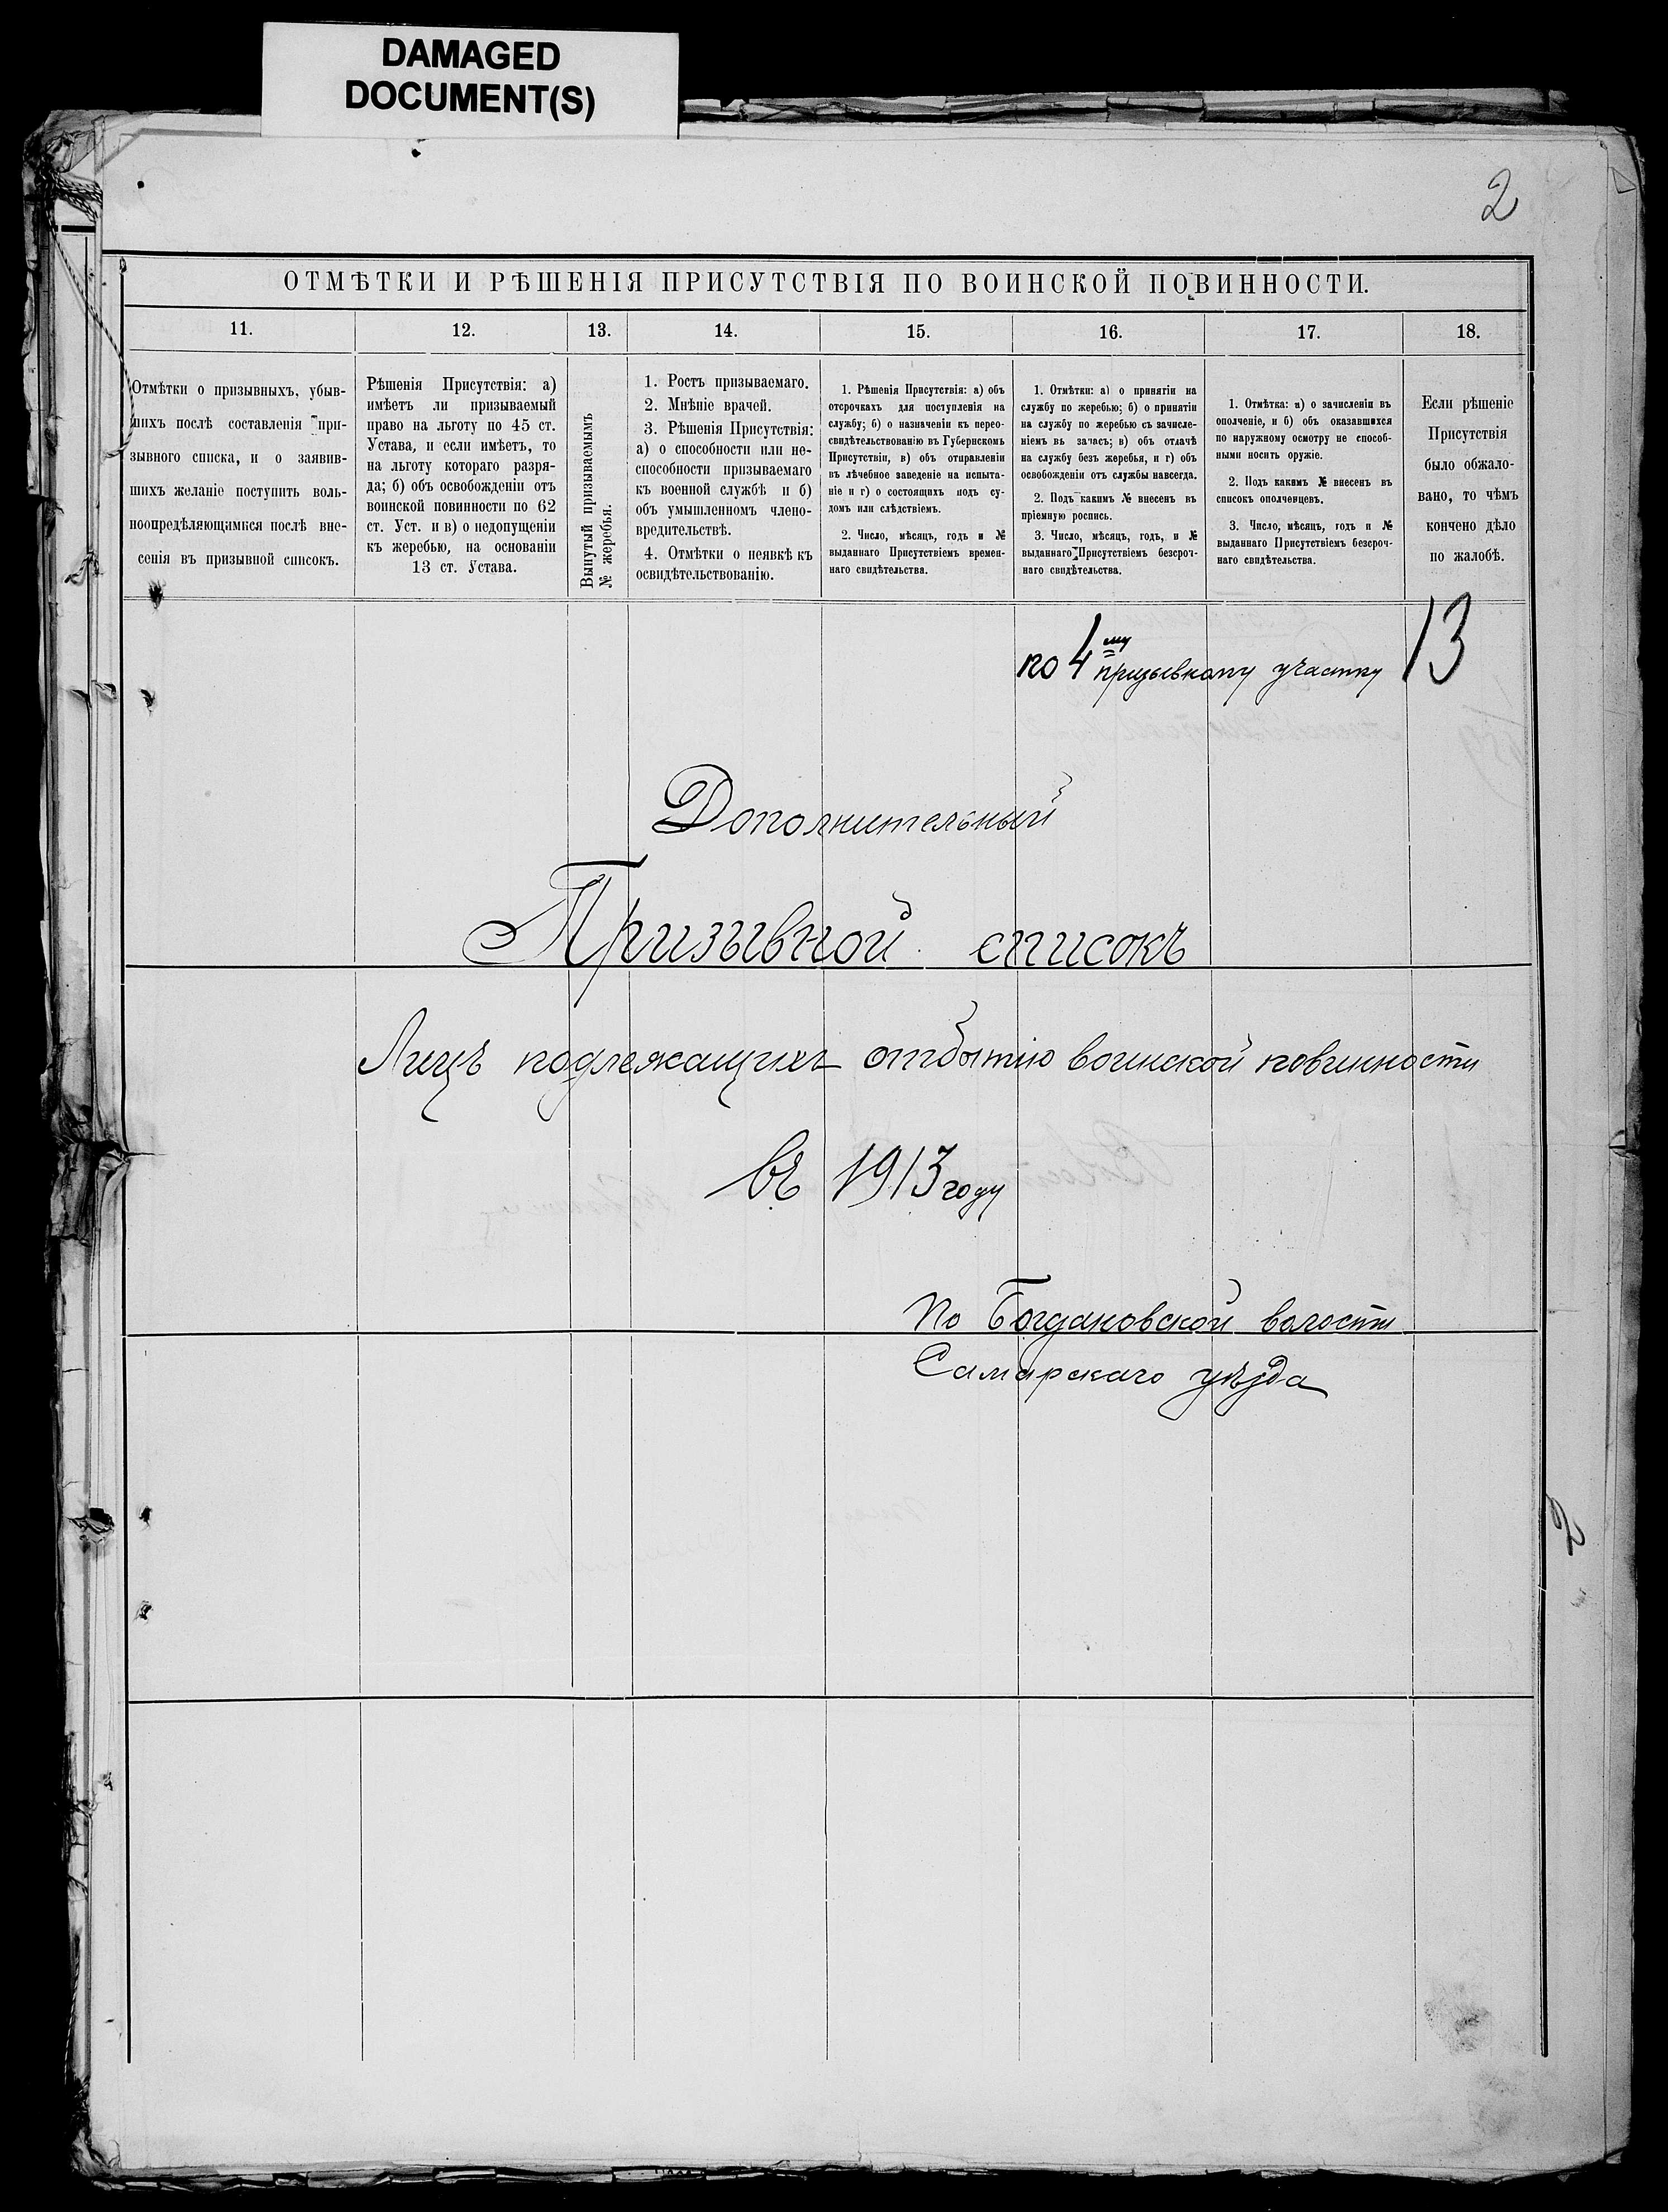 DAMAGED
DOCUMENT(S)
2
ОТМѢТКИ И РѢШЕНІЯ ПРИСУТСТВІЯ ПО ВОИНСКОЙ ПОВИННОСТИ.
11.
12.
13.
14.
15.
16.
17.
18.
Отмѣтки о призывныхъ, убыв-
шихъ послѣ составленія при-
зывного списка, и о заявив-
шихъ желаніе поступить воль-
ноопредѣляющимися послѣ вне-
сенія въ призывной списокъ.
Рѣшенія Присутствія: а)
имѣетъ ли призываемый
право на льготу по 45 ст.
Устава, и если имѣетъ, то
на льготу котораго разря-
да; б) объ освобожденіи отъ
воинской повинности по 62
ст. Уст. и в) о недопущеніи
къ жеребью, на основаніи
13 ст. Устава.
Вынутый призываемымъ
№ жеребья.
1. Ростъ призываемаго.
2. Мнѣніе врачей.
3. Рѣшенія Присутствія:
а) о способности или не-
способности призываемаго
къ военной службѣ и б)
объ умышленномъ члено-
вредительствѣ.
4. Отмѣтки о неявкѣ къ
освидѣтельствованію.
1. Рѣшенія Присутствія: а) объ
отсрочкахъ для поступленія на
службу; б) о назначеніи къ перео-
свидѣтельствованію въ Губернскомъ
Присутствіи, в) объ отправленіи
въ лѣчебное заведеніе на испыта-
ніе и г) о состоящихъ подъ су-
домъ или слѣдствіемъ.
2. Число, мѣсяцъ, годъ и №
выданнаго Присутствіемъ времен-
наго свидѣтельства.
1. Отмѣтки: а) о принятіи на
службу по жеребью; б) о принятіи
на службу по жеребью съ зачисле-
ніемъ въ запасъ; в) объ отдачѣ
на службу безъ жеребья, и г) объ
освобожденіи отъ службы навсегда.
2. Подъ какимъ № внесенъ въ
пріемную роспись.
3. Число, мѣсяцъ, годъ, и №
выданнаго Присутствіемъ безсроч-
наго свидѣтельства.
1. Отмѣтка: а) о зачисленіи въ
ополченіе, и б) объ оказавшихся
по наружному осмотру не способ-
ными носить оружіе.
2. Подъ какимъ № внесенъ въ
списокъ ополченцевъ.
3. Число, мѣсяцъ, годъ и №
выданнаго Присутствіемъ безсроч-
наго свидѣтельства.
Если рѣшеніе
Присутствія
было обжало-
вано, то чѣмъ
кончено дѣло
по жалобѣ.
по 4му призывному участку 13
Дополнительный
Призывной списокъ
Лицъ подлежащихъ отбытію воинской повинности
въ 1913 году
По Богдановской волости
Самарскаго уѣзда